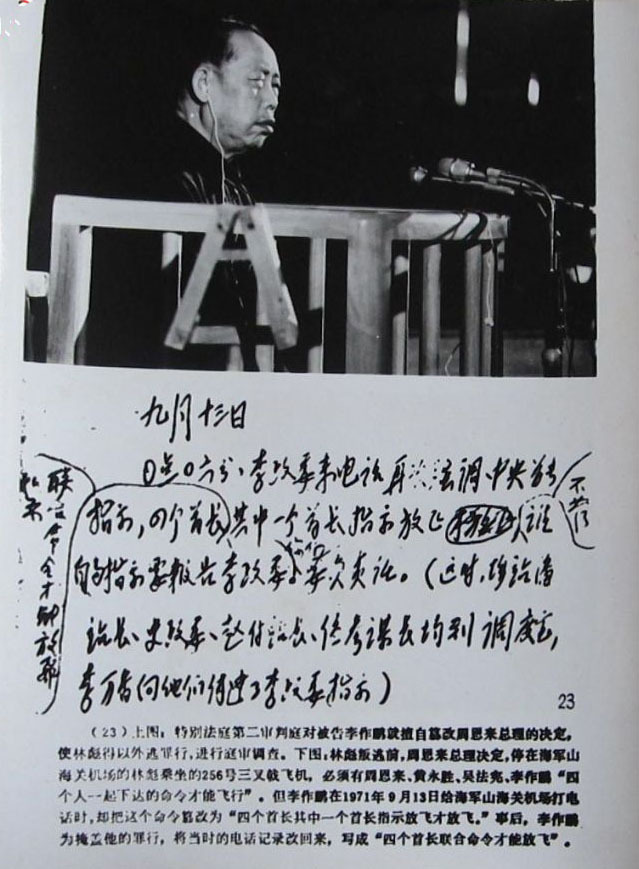 九月十三日
0点0六分、李政委来电话再次强调,中央首长
指示,四个首长其中一个首长指示放飞 谁
的指示要报告李政委 要负责任。(这时,
站长、史政委、赵付站长、佟参谋长均到调度室,
李万香向他们传达了李政委指示)
联合命令才能放飞
23
（23）上图：特别法庭第二审判庭对被告李作鹏就擅自篡改周恩来总理的决定，
使林彪得以外逃罪行，进行庭审调查。下图：林彪叛逃前，周恩来总理决定，停在海军山
海关机场的林彪乘坐的256号三叉戟飞机，必须有周恩来、黄永胜、吴法宪、李作鹏“四
个人一起下达的命令才能飞行”。但李作鹏在1971年9月13日给海军山海关机场打电
话时，却把这个命令篡改为“四个首长其中一个首长指示放飞才放飞。”事后，李作鹏
为掩盖他的罪行，将当时的电话记录改回来，写成“四个首长联合命令才能放飞”。